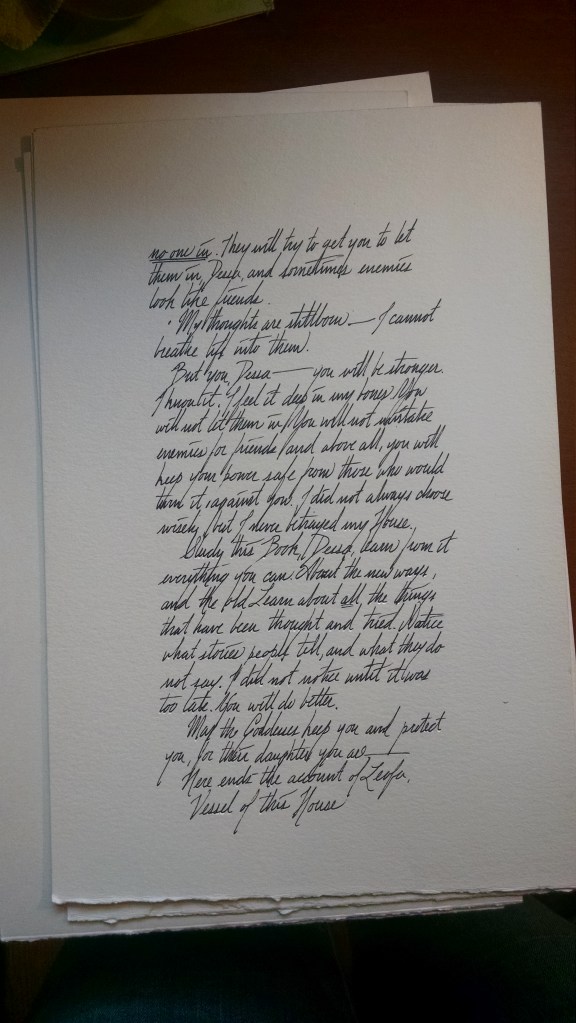 no one in. They will try to get you to let
them in, Dessa, and sometimes enemies
look like friends.
My thoughts are stillborn — I cannot
breathe life into them.
But you, Dessa — you will be stronger.
I know it. I feel it deep in my bones. You
will not let them in. You will not mistake
enemies for friends, and above all, you will
keep your power safe from those who would
turn it against you. I did not always choose
wisely, but I never betrayed my House.
Study this Book, Dessa, learn from it
everything you can. About the new ways,
and the old. Learn about all the things
that have been thought and tried. Notice
what stories people tell, and what they do
not say. I did not notice until it was
too late. You will do better.
May the Goddesses keep you and protect
you, for their daughter you are —
Here ends the account of Leofa,
Vessel of this House